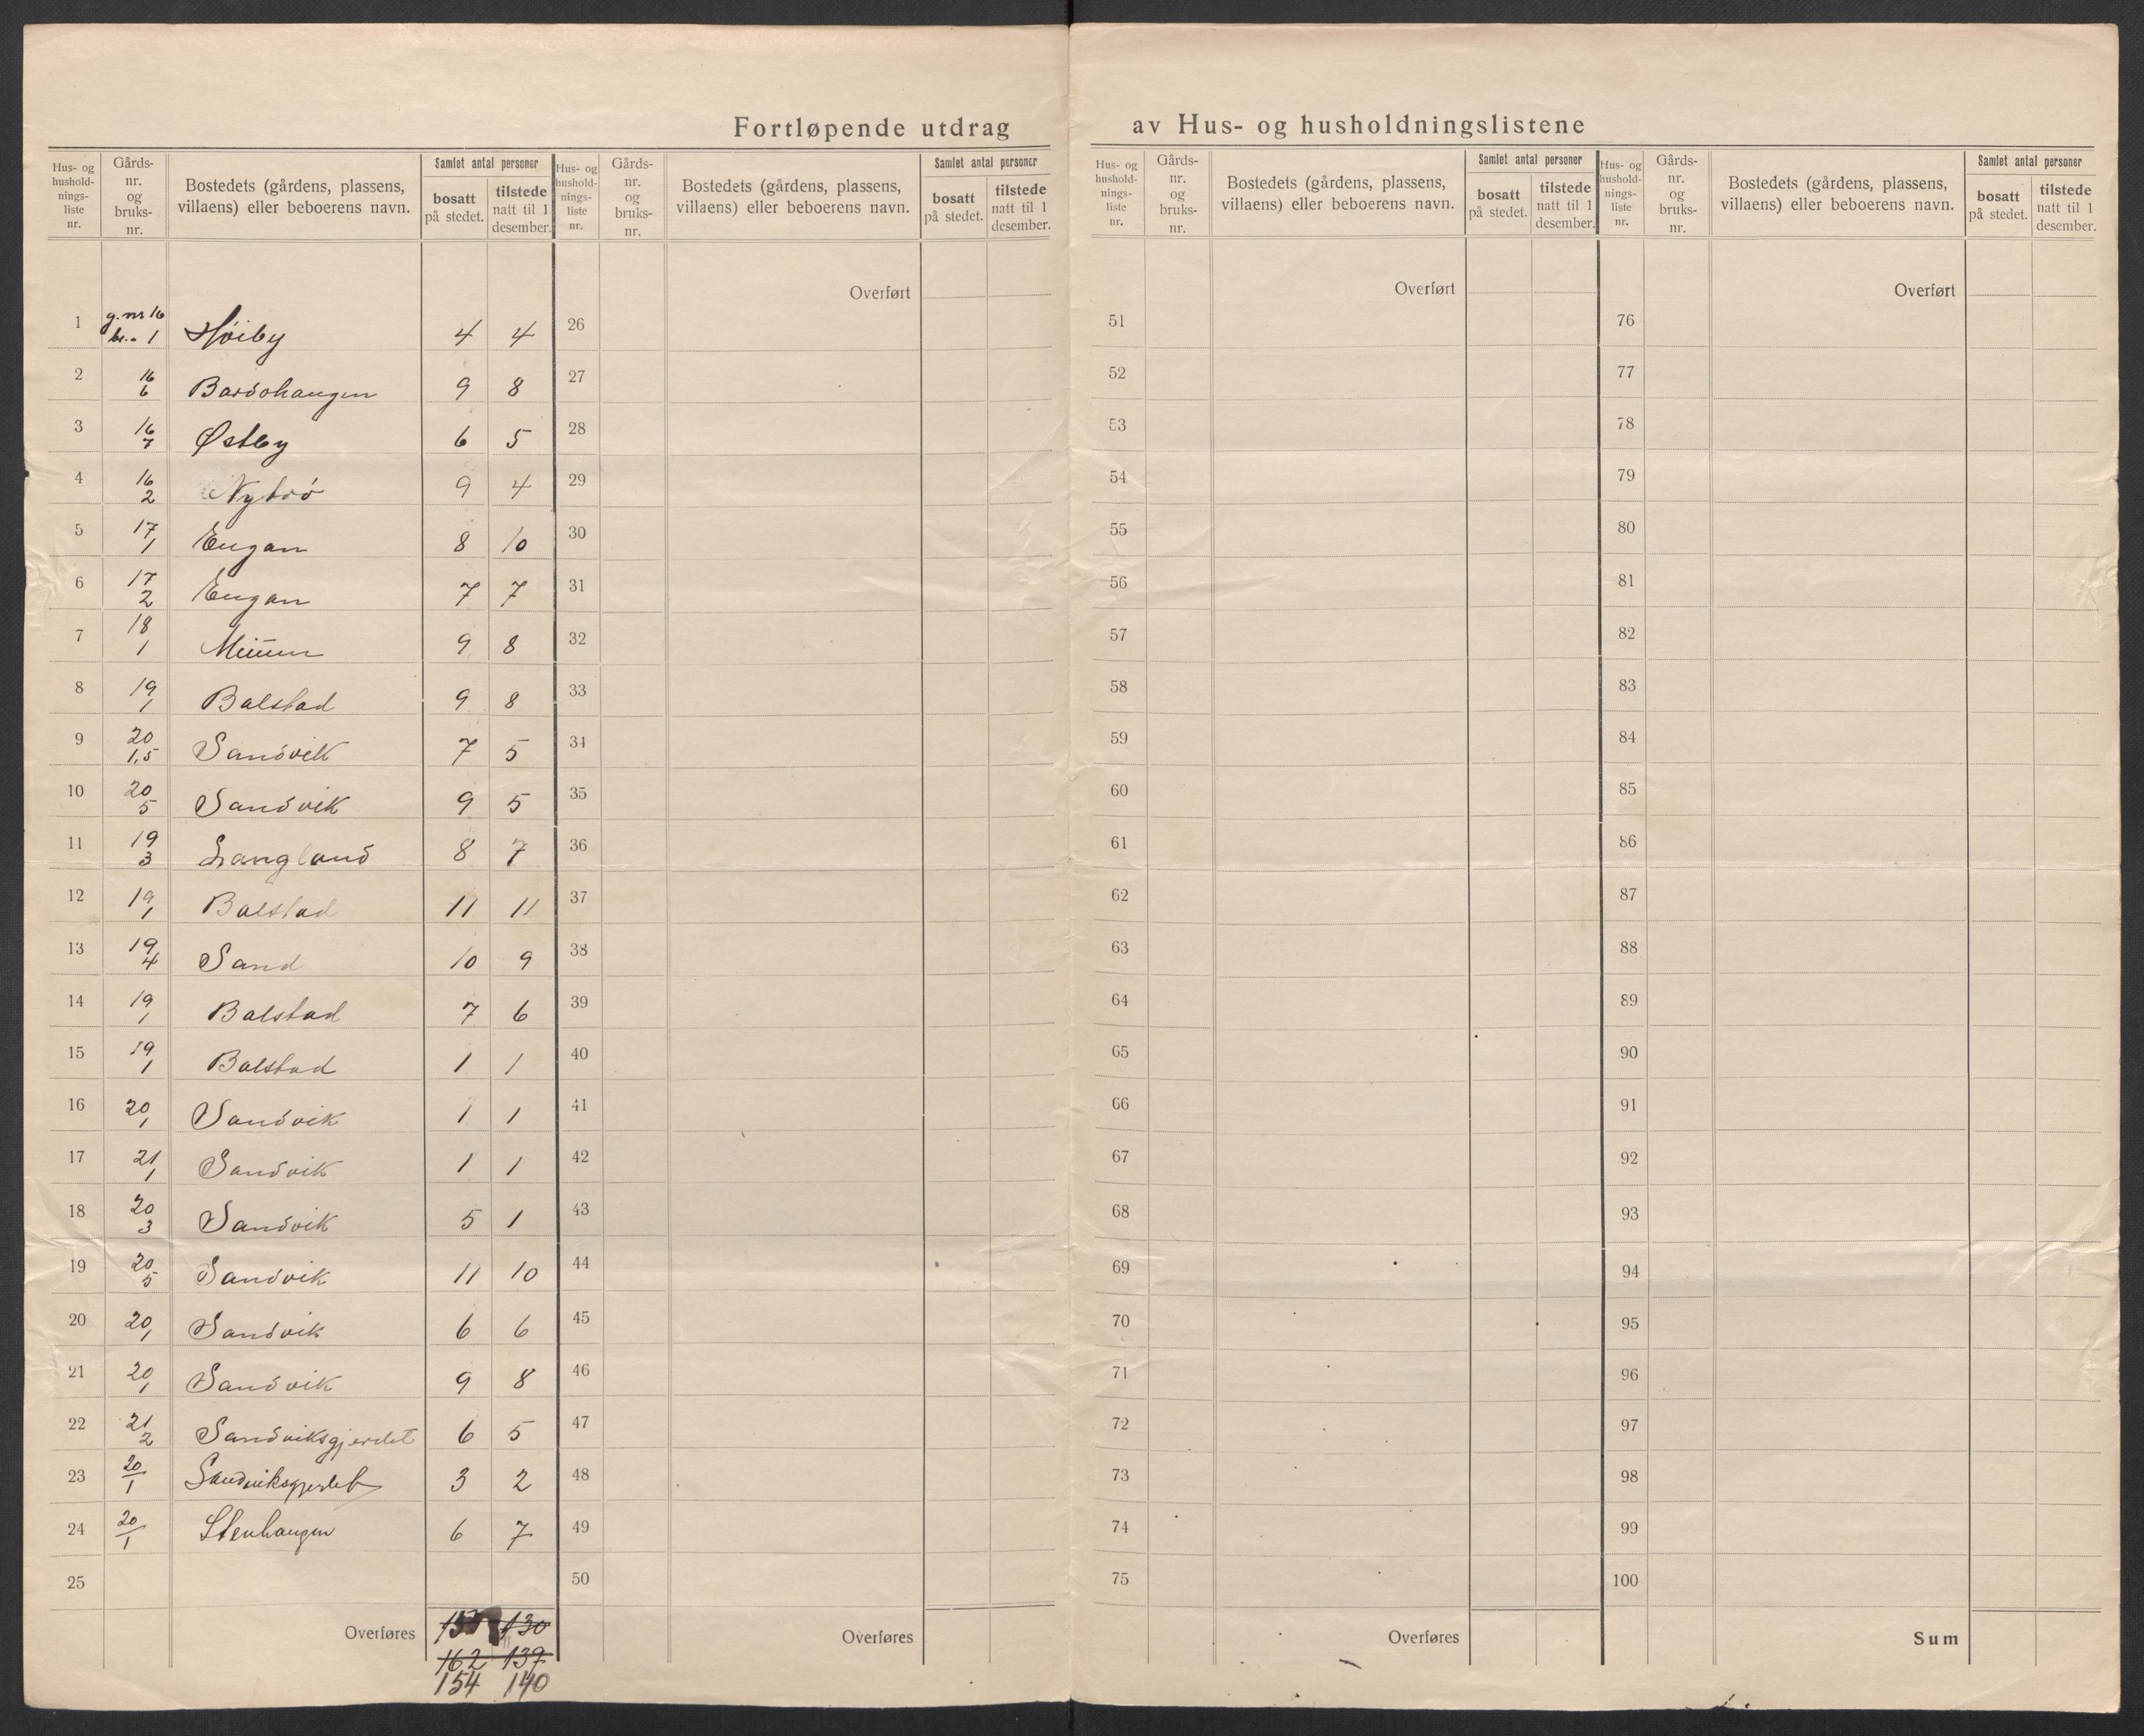 Fortløpende utdrag av Hus- og husholdningslistene
Hus- og hushold-nings-liste nr. Gårds-nr. og bruks-nr. Bostedets (gårdens, plassens, villaens) eller beboerens navn. Samlet antal personer bosatt på stedet. tilstede natt til 1 desember.
Hus- og hushold-nings-liste nr. Gårds-nr. og bruks-nr. Bostedets (gårdens, plassens, villaens) eller beboerens navn. Samlet antal personer bosatt på stedet. tilstede natt til 1 desember.
Hus- og hushold-nings-liste nr. Gårds-nr. og bruks-nr. Bostedets (gårdens, plassens, villaens) eller beboerens navn. Samlet antal personer bosatt på stedet. tilstede natt til 1 desember.
Hus- og hushold-nings-liste nr. Gårds-nr. og bruks-nr. Bostedets (gårdens, plassens, villaens) eller beboerens navn. Samlet antal personer bosatt på stedet. tilstede natt til 1 desember.
Overført Overført Overført
1 g.nr 16 br.. 1 Høiby 4 4 26 51 76
2 16 6 Bardohaugen 9 8 27 52 77
3 16 7 Østby 6 5 28 53 78
4 16 2 Nybrö 9 4 29 54 79
5 17 1 Engan 8 10 30 55 80
6 17 2 Engan 7 7 31 56 81
7 18 1 9 8 32 57 82
8 19 1 Balstad 9 8 33 58 83
9 20 1,5 Sandvik 7 5 34 59 84
10 20 5 Sandvik 9 5 35 60 85
11 19 3 Langland 8 7 36 61 86
12 19 1 Balstad 11 11 37 62 87
13 19 4 Sand 10 9 38 63 88
14 19 1 Balstad 7 6 39 64 89
15 19 1 Balstad 1 1 40 65 90
16 20 1 Sandvik 1 1 41 66 91
17 21 1 Sandvik 1 1 42 67 92
18 20 3 Sandvik 5 1 43 68 93
19 20 5 Sandvik 11 10 44 69 94
20 20 1 Sandvik 6 6 45 70 95
21 20 1 Sandvik 9 8 46 71 96
22 21 2 Sandviksgjerdet 6 5 47 72 97
23 20 1 Sandviksgjerdet 3 2 48 73 98
24 20 1 Stenhaugen 6 7 49 74 99
25 50 75 100
Overføres 130 Overføres Overføres Sum
162 139
154 140